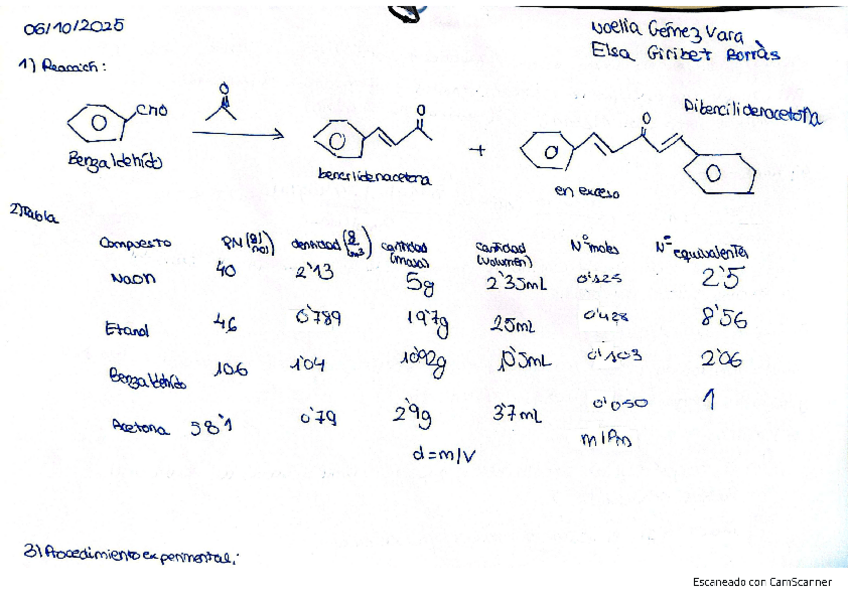 06/10/2025
Noelia Gémez Vara
Elsa Giribet Borràs
1) Reacción:
CHO
O
O
O
Dibencilidenacetona
Benzaldehído
+
bencilidenacetona
en exceso
2) Tabla
Compuesto PM (g/mol) densidad (g/cm3) cantidad (masa) cantidad (volumen) Nº moles Nº equivalentes
NaOH 40 2'13 5g 2'35mL 0'125 2'5
Etanol 46 0'789 19'7g 25mL 0'428 8'56
Benzaldehído 106 1'04 10'92g 10'5mL 0'103 2'06
Acetona 58'1 0'79 2'9g 3'7mL 0'050 1
m/Pm
d=m/V
3) Procedimiento experimental:
Escaneado con CamScanner